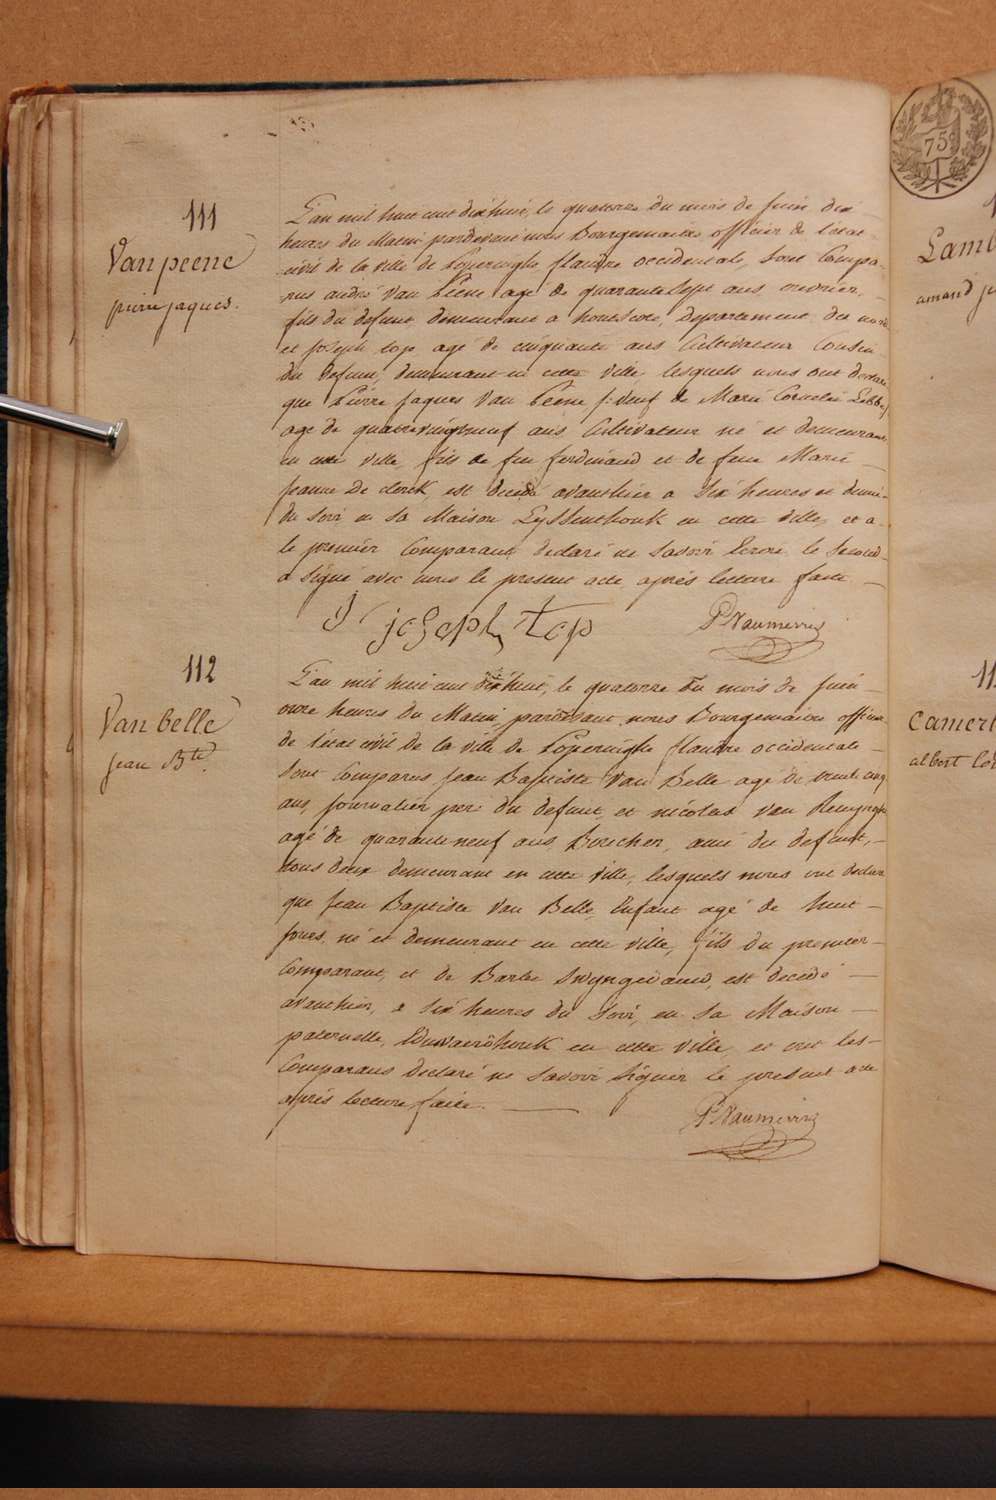 111
Vanpeene
pierre jaques.
L'an mil huit cent dix huit, le quatorze du mois de Juin dix
heures du Matin pardevant nous Bourgemaitre officier de l'etat
civil de la ville de Poperinghe flandre occidentale, Sont Compa-
rus andré Van Peene agé de quarante Sept ans, ouvrier,
fils du defunt, demeurant a hontScote, departement du nord
et Joseph top agé de cinquante ans Cultivateur Cousin
du defunt, demeurant en cette ville, lesquels nous ont declaré
que Pierre Jaques Van Peene, veuf de Marie Cornelie
agé de quatrevingtneuf ans, Cultivateur né et demeurant
en cette ville, fils de feu ferdinand et de feue Marie
Jeanne De clerck, est decedé avanthier a Six heures et demie
du Soir en Sa Maison Eyssenthouk en cette ville, et a
le premier Comparant declaré ne Savoir Ecrire le Second
a Signé avec nous le present acte après lecture faite
joseph top
112
Van belle
Jean Bte.
L'an mil huit cent dix huit, le quatorze du mois de Juin
onze heures du Matin, pardevant nous Bourgemaitre officier
de l'etat civil de la ville de Poperinghe flandre occidentale
Sont Comparus Jean Baptiste Van Belle agé de trente cinq
ans, journalier pere du defunt, et nicolas Van
agé de quarante neuf ans, Boucher, ami du defunt,
tous deux demeurant en cette ville, lesquels nous ont declaré
que Jean Baptiste Van Belle, Enfant agé de huit
jours, né et demeurant en cette ville, fils du premier
Comparant, et de Barbe Swyngedauw, est decedé
avanthier, a Six heures du Soir, en Sa Maison
paternelle, Edewaershouk en cette ville, et ont les
Comparans declaré ne Savoir Signer le present acte
après lecture faite.
75
amand
Camert
albert